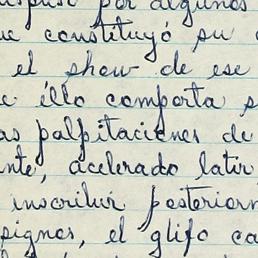 por algunos
constituyó su
el show de ese
éllo comporta
palpitaciones de
acelerado latir
inscribir posteriorm
signos, el glifo ca